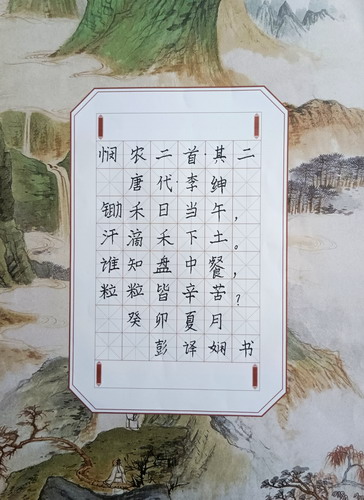 悯农二首·其二
唐代·李绅
锄禾日当午，
汗滴禾下土。
谁知盘中餐，
粒粒皆辛苦？
癸卯夏月
彭译娴书